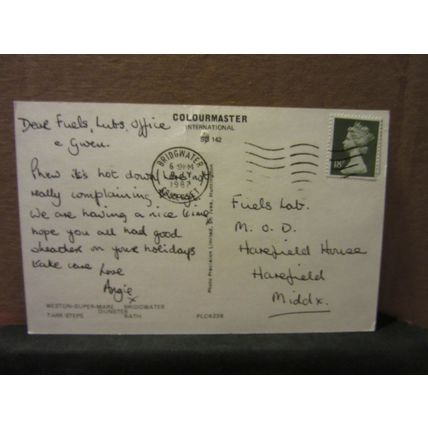 Dear Fuels, Lubs, Office
& Gwen.
Phew it's hot down here not
really complaining.
We are having a nice time
hope you all had good
weather on your holidays
take care love
Angie
x
WESTON-SUPER-MARE BRIDGWATER
DUNSTER
TARR STEPS BATH
PLC6239
COLOURMASTER
INTERNATIONAL
142
Photo Precision Limited, St. Ives, Huntingdon
BRIDGWATER
6 PM
1987
SOMERSET
18P
Fuels Lab.
M. O. D.
Harefield House
Harefield
Middx.